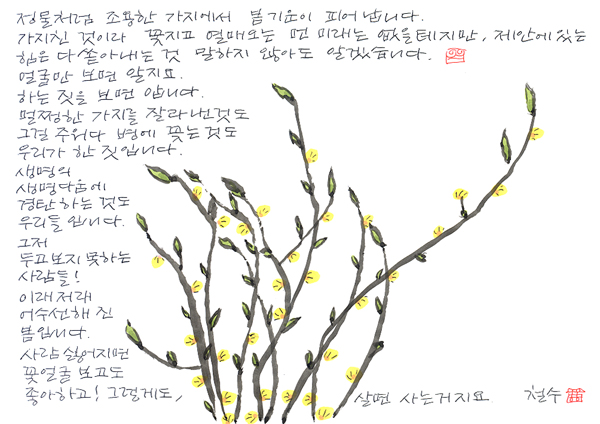 정물처럼 조용한 가지에서 봄기운이 피어납니다.
가지친 것이라 꽃지고 열매오는 먼 미래는 없을테지만, 제안에 있는
힘은 다 쏟아내는 것 말하지 않아도 알겠습니다.
얼굴만 보면 알지요.
하는 짓을 보면 압니다.
멀쩡한 가지를 잘라낸것도
그걸 주워다 병에 꽂는것도
우리가 한 짓입니다.
생명의
생명다움에
경탄하는 것도
우리들 입니다.
그저
두고보지 못하는
사람들!
이래저래
어수선해 진
봄입니다.
사람 싫어지면
꽃얼굴 보고도
좋아하고! 그렇게도,
살면 사는거지요 철수